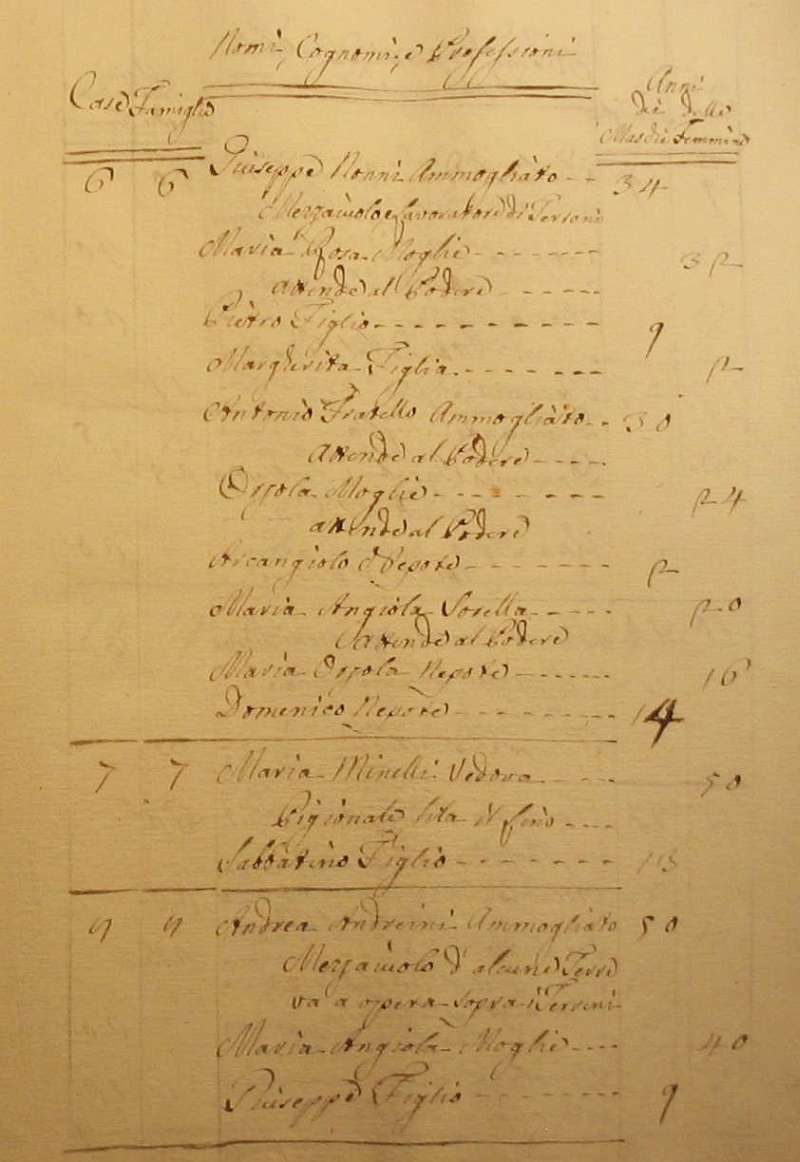 Nomi, Cognomi, e Professioni
Case Famiglie
Anni
dei delle
Maschi Femmine
6 6 Giuseppe Nonni Ammogliato 34
Mezzaiuolo e lavoratore di Terreni
Maria Rosa Moglie 32
attende al Podere
Pietro Figlio 9
Margherita Figlia 2
Antonio Fratello Ammogliato 30
Attende al Podere
Orsola Moglie 24
attende al Podere
Arcangiolo Nepote 2
Maria Angiola Sorella 20
Attende al Podere
Maria Orsola Nepote 16
Domenico Nepote 14
7 7 Maria Minelli Vedova 50
Pigionale fila il lino
Sabbatino Figlio 13
Andrea Andreini Ammogliato 50
Mezzaiuolo d'alcune Terre
va a opera sopra i Terreni
Maria Angiola Moglie 40
Giuseppe Figlio 9